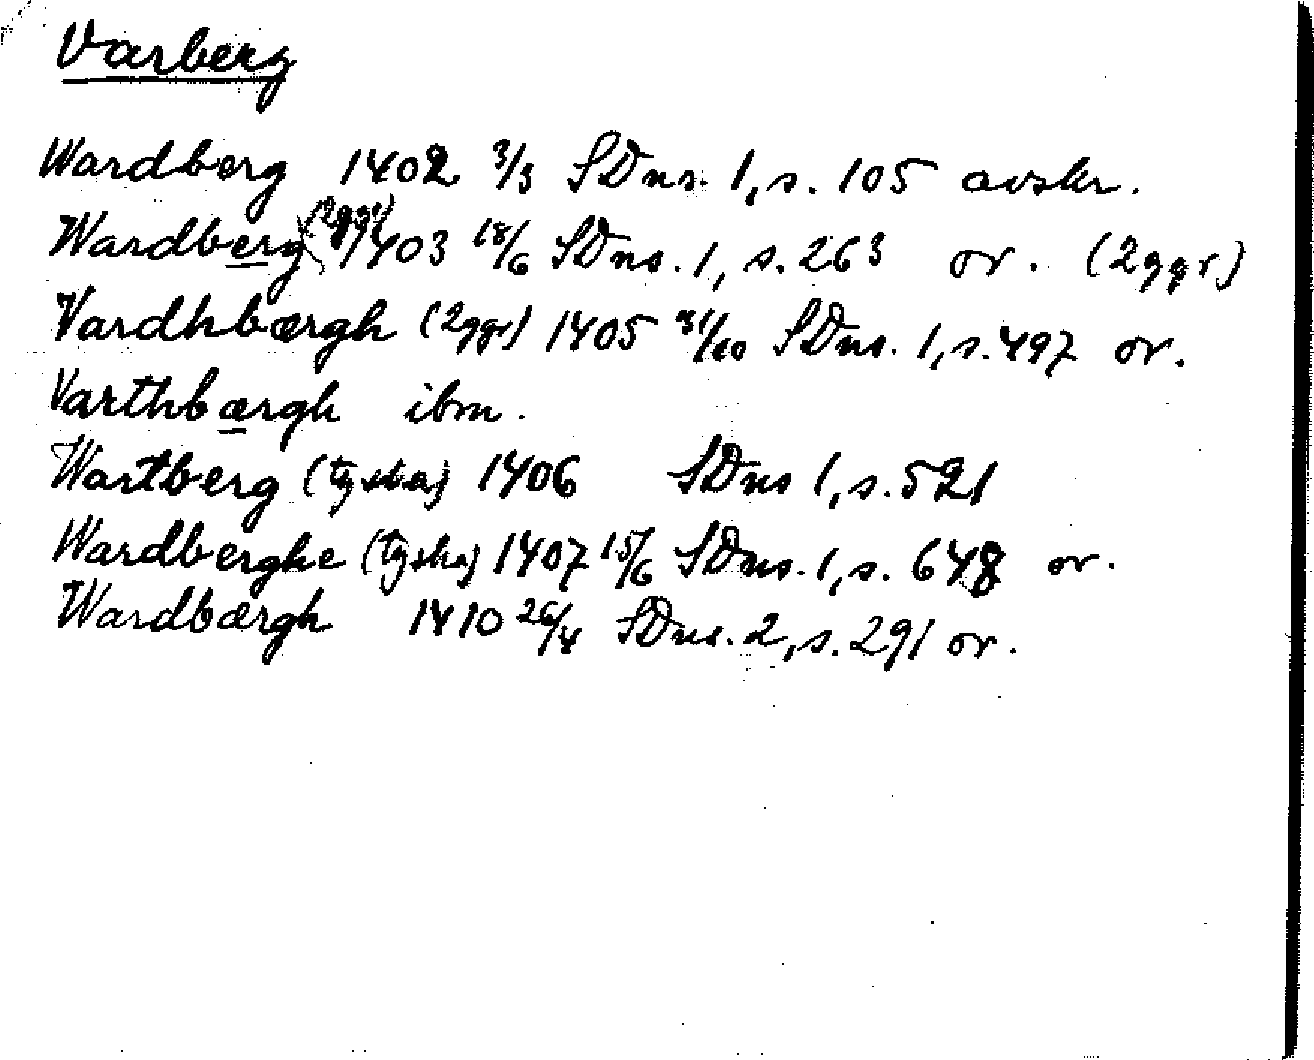 Varberg
Wardberg 1402 3/3 SDns. 1, s. 105 avskr.
Wardberg (2ggr) 1403 18/6 SDns. 1, s. 263 or. (2ggr)
Vardhbærgh (2ggr) 1405 31/10 SDns. 1, s. 497 or.
Varthbærgh ibm.
Wartberg (tyska) 1406 SDns 1, s. 521
Wardberghe (tyska) 1407 15/6 SDns. 1, s. 648 or.
Wardbærgh 1410 26/4 SDns. 2, s. 291 or.